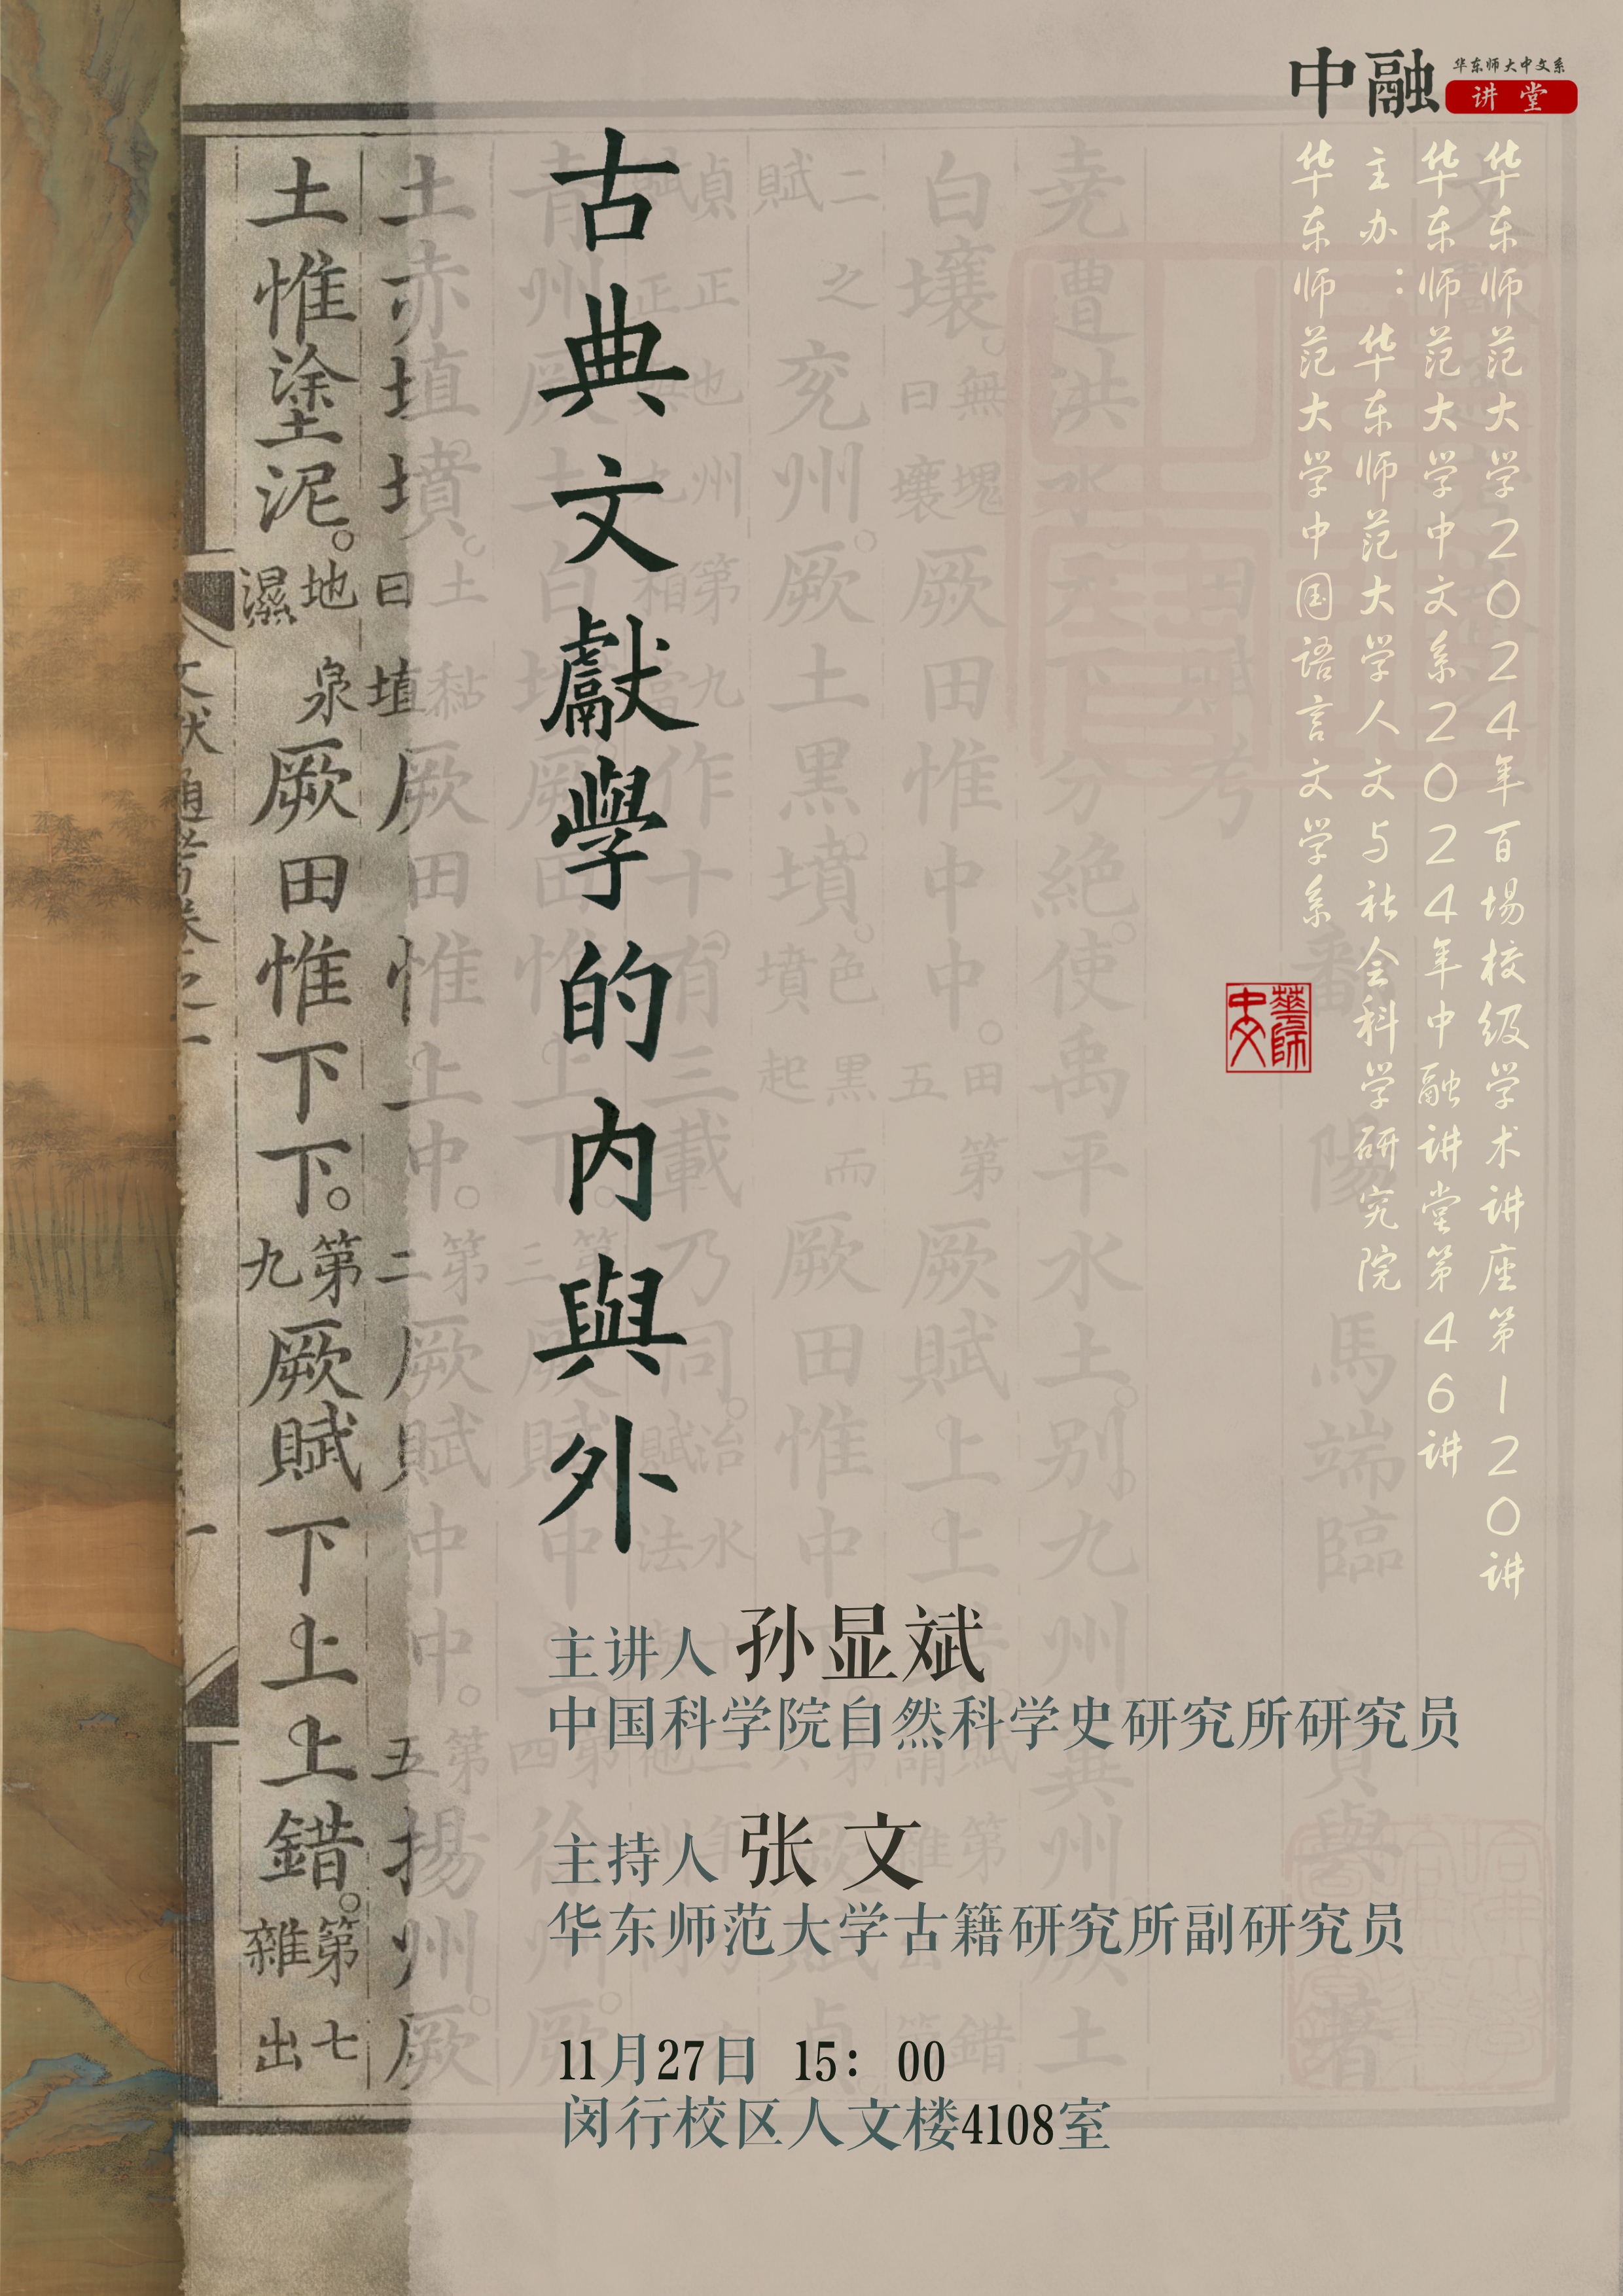 中融
华东师大中文系
讲堂
华东师范大学2024年百场校级学术讲座第120讲
华东师范大学中文系2024年中融讲堂第46讲
主办：华东师范大学人文与社会科学研究院
华东师范大学中国语言文学系
華師中文
古典文獻學的内與外
主讲人 孙显斌
中国科学院自然科学史研究所研究员
主持人 张文
华东师范大学古籍研究所副研究员
11月27日 15：00
闵行校区人文楼4108室
田賦考
鄱陽馬端臨貴與著
堯遭洪水天下分絶使禹平水土别九州冀州厥土
白壤無塊曰壤厥田惟中中田第五厥賦上上錯
二之兖州厥土黑墳色黑而墳起厥田惟中
作十有三載乃同
土赤埴墳土黏曰埴厥田惟上中第二厥賦中中第五揚州厥
土惟塗泥地泉濕厥田惟下下第九厥賦下上上錯第七雜出
文獻通考卷之一